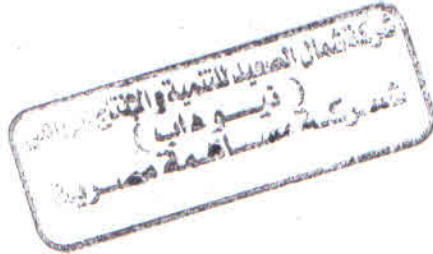 شركة شمال الصعيد للتنمية والإنتاج الزراعى
( نيو داب )
شركة مساهمة مصرية